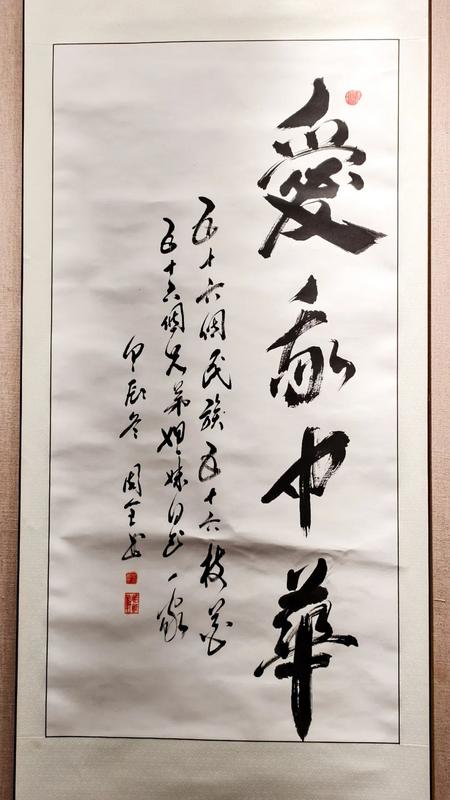 愛我中華
五十六個民族五十六枝花
五十六個兄弟姐妹是一家
甲辰冬 周全书